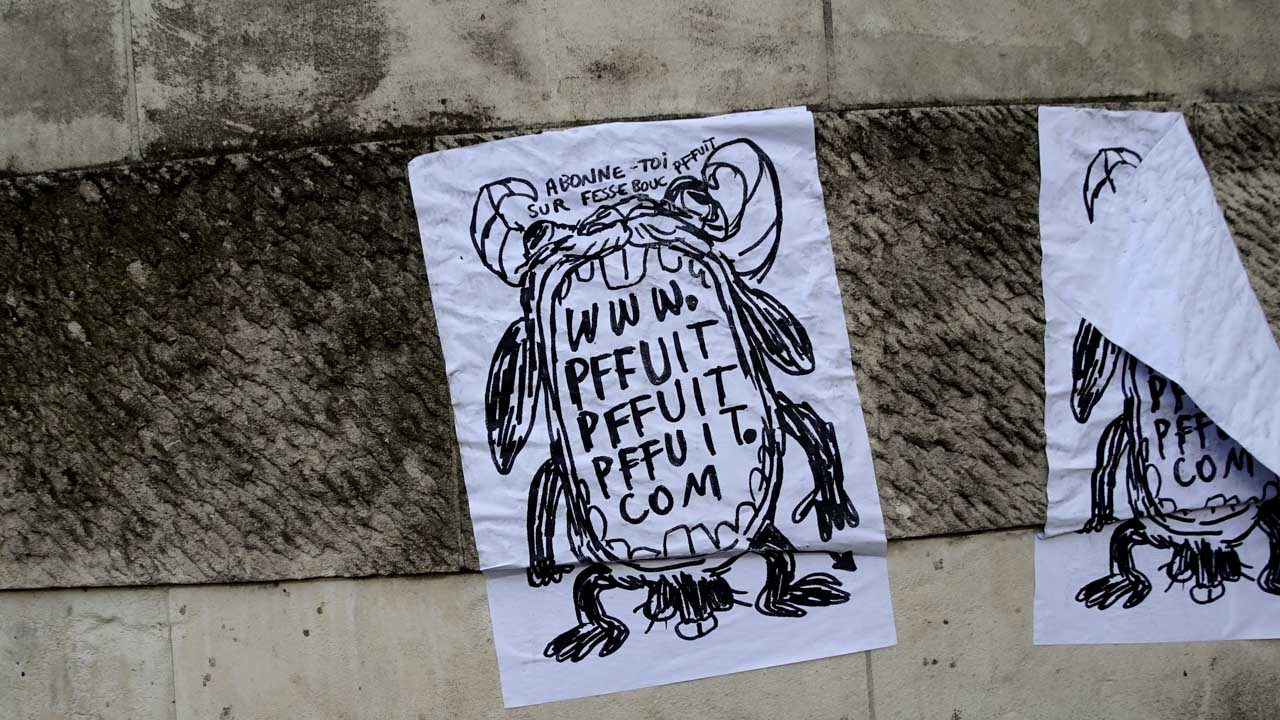 ABONNE-TOi
SUR FESSE BOUC PFFUIT
WWW.
PFFUIT
PFFUIT
PFFUIT.
COM
PFFU
COM